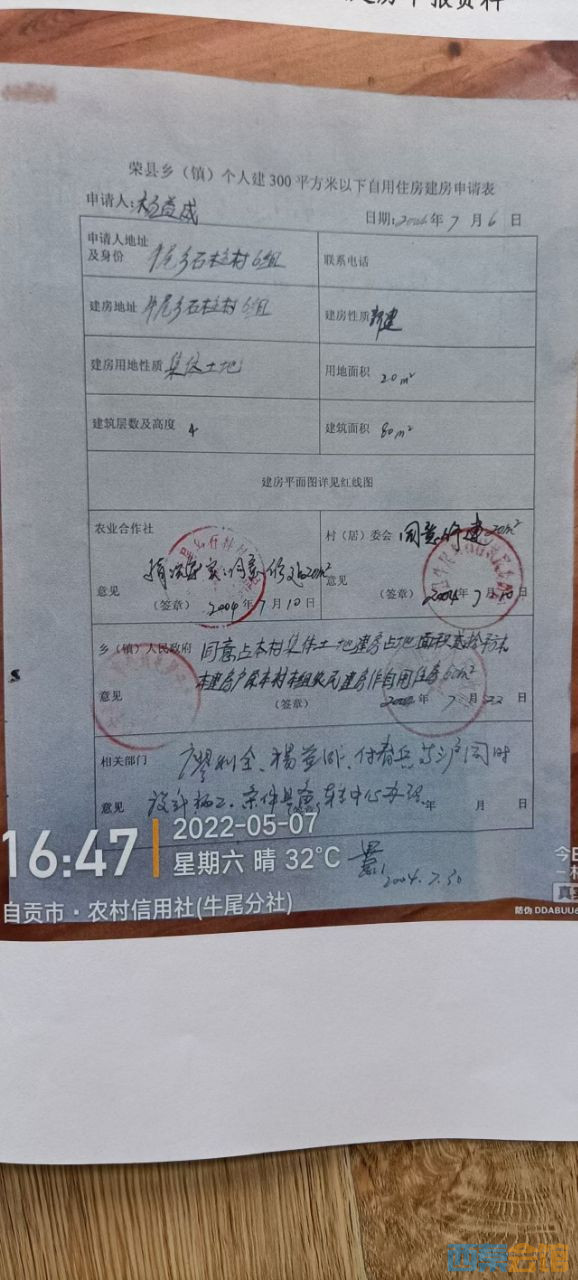 荣县乡（镇）个人建300平方米以下自用住房建房申请表
申请人:杨益成 日期:2004年7月6日
申请人地址及身份 牛尾乡石柱村6组 联系电话
建房地址 牛尾乡石柱村6组 建房性质 新建
建房用地性质 集体土地 用地面积 20m²
建筑层数及高度 4 建筑面积 80m²
建房平面图详见红线图
农业合作社 村（居）委会 同意修建20m²
情况属实,同意修建20m²
意见 意见
（签章） 2004年7月10日 （签章） 2004年7月10日
乡（镇）人民政府 同意占本村集体土地建房占地面积贰拾平方米
本建房户属本村本组农民建房作自用住房
意见 （签章） 年7月22日
相关部门 同时
意见 设计施工、条件具备 年 月 日
2004.7.30
16:47
2022-05-07
星期六 晴 32°C
自贡市·农村信用社(牛尾分社)
防伪 DDABUU